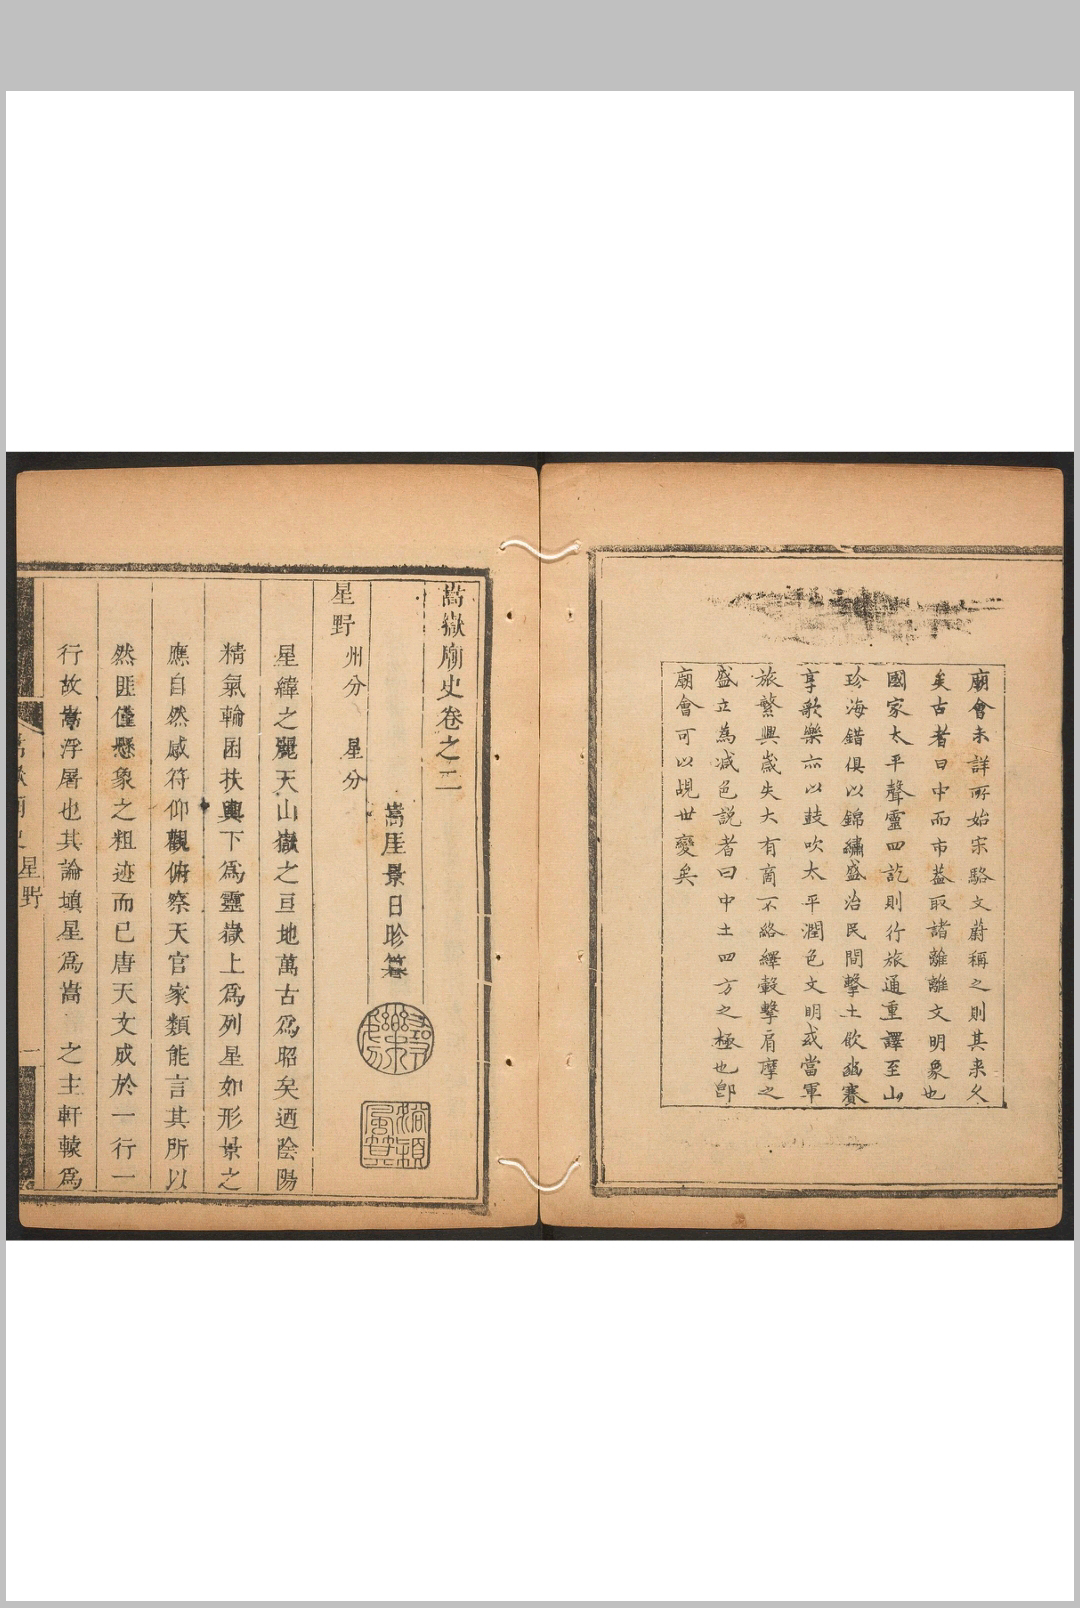 廟會未詳所始宋駱文蔚稱之則其来久
矣古者日中而市葢取諸離離文明象也
國家太平聲靈四訖則行旅通重譯至山
珍海錯俱以錦繡盛治民間擊土飲豳賽
享歌樂亦以鼓吹太平潤色文明或當軍
旅繁興歲失大有商不絡繹轂擊肩摩之
盛立為減色説者曰中土四方之極也卽
廟會可以覘世變矣
嵩嶽廟史卷之二
嵩崖景日昣纂
星野 州分 星分
星緯之麗天山嶽之亘地萬古爲昭矣迺陰陽
精氣輪囷扶輿下爲靈嶽上爲列星如形景之
應自然感符仰觀俯察天官家類能言其所以
然匪僅懸象之粗迹而已唐天文成於一行一
行故嵩浮屠也其論塡星爲嵩 之主軒轅爲
星野
一